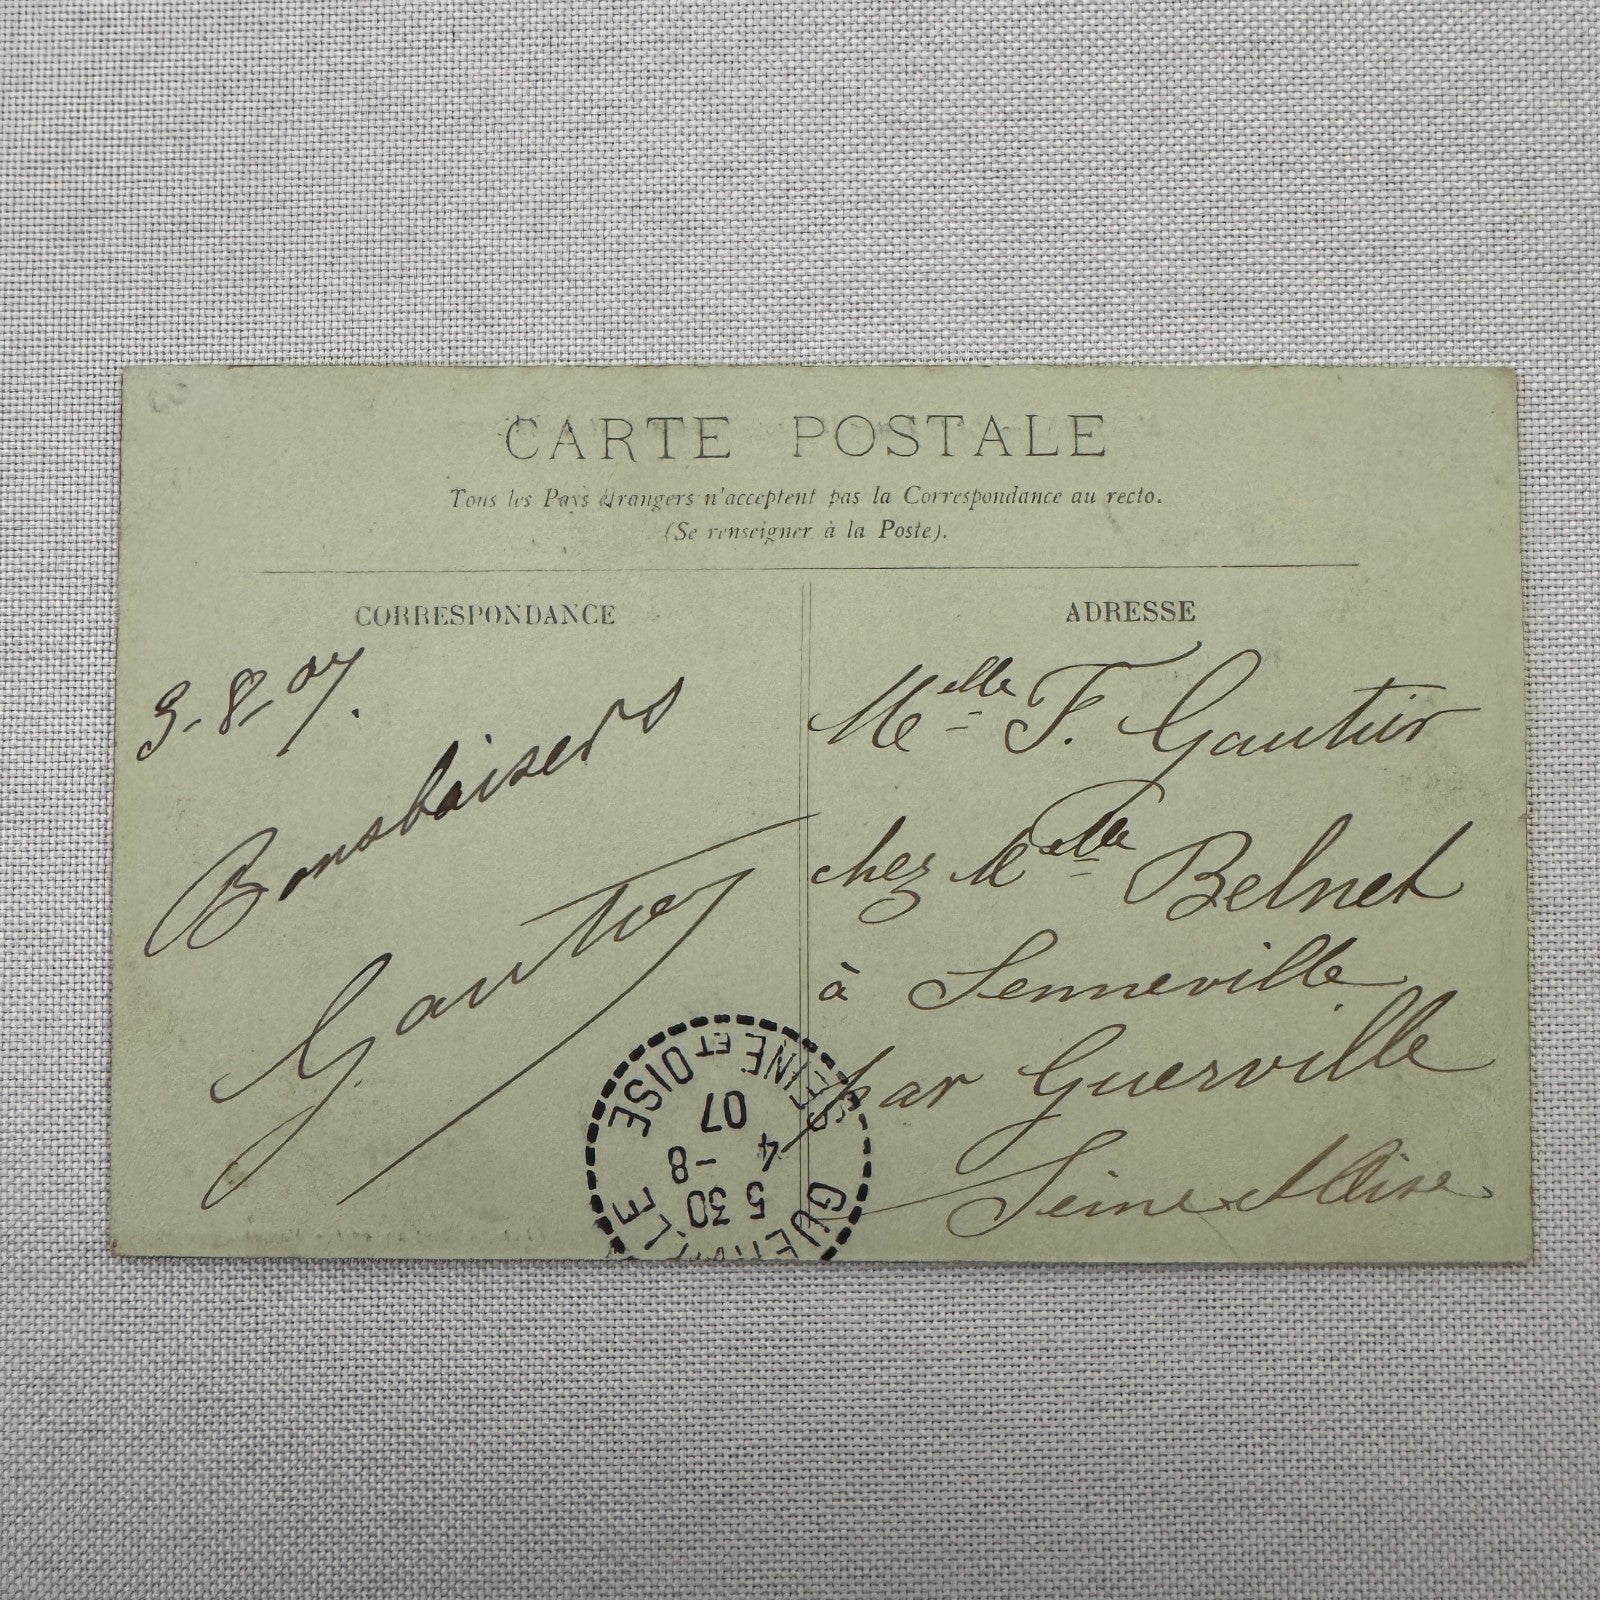 CARTE POSTALE
Tous les Pays étrangers n'acceptent pas la Correspondance au recto.
(Se renseigner à la Poste).
CORRESPONDANCE
3-8-07.
Bonsbaisers
Gautier
ADRESSE
Melle F. Gautier
chez Melle Belnet
à Senneville
par Guerville
Seine et Oise
GUERVILLE
5 30
4 -8
07
SEINE ET OISE